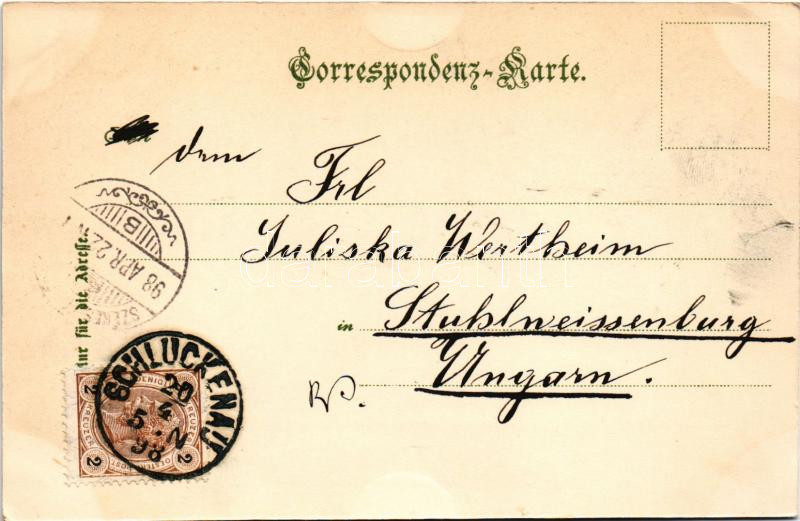 Correspondenz-Karte.
dem
Frl
Juliska Wertheim
in Stuhlweissenburg
Ungarn.
Nur für die Adresse.
98 APR. 22
B
SZÉKES
SCHLUCKENAU
20
4
5 · N
98
2
2
2
2
KREUZER